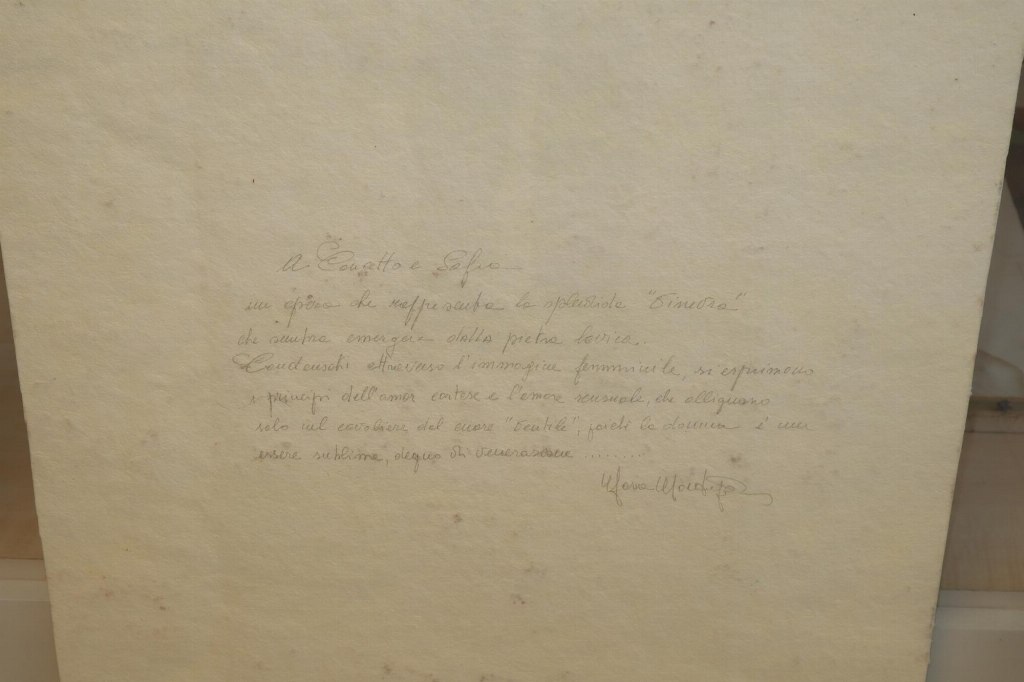 A Concetto e
un opera che rappresenta la splendida "Ginevra"
che sembra emergere dalla pietra lavica..
Condensati attraverso l'immagine femminile, si esprimono
i principi dell'amor cortese e l'amore sensuale, che albergano
solo nel cavaliere dal cuore "Gentile", perché la donna è un
essere sublime, degno di venerazione ........